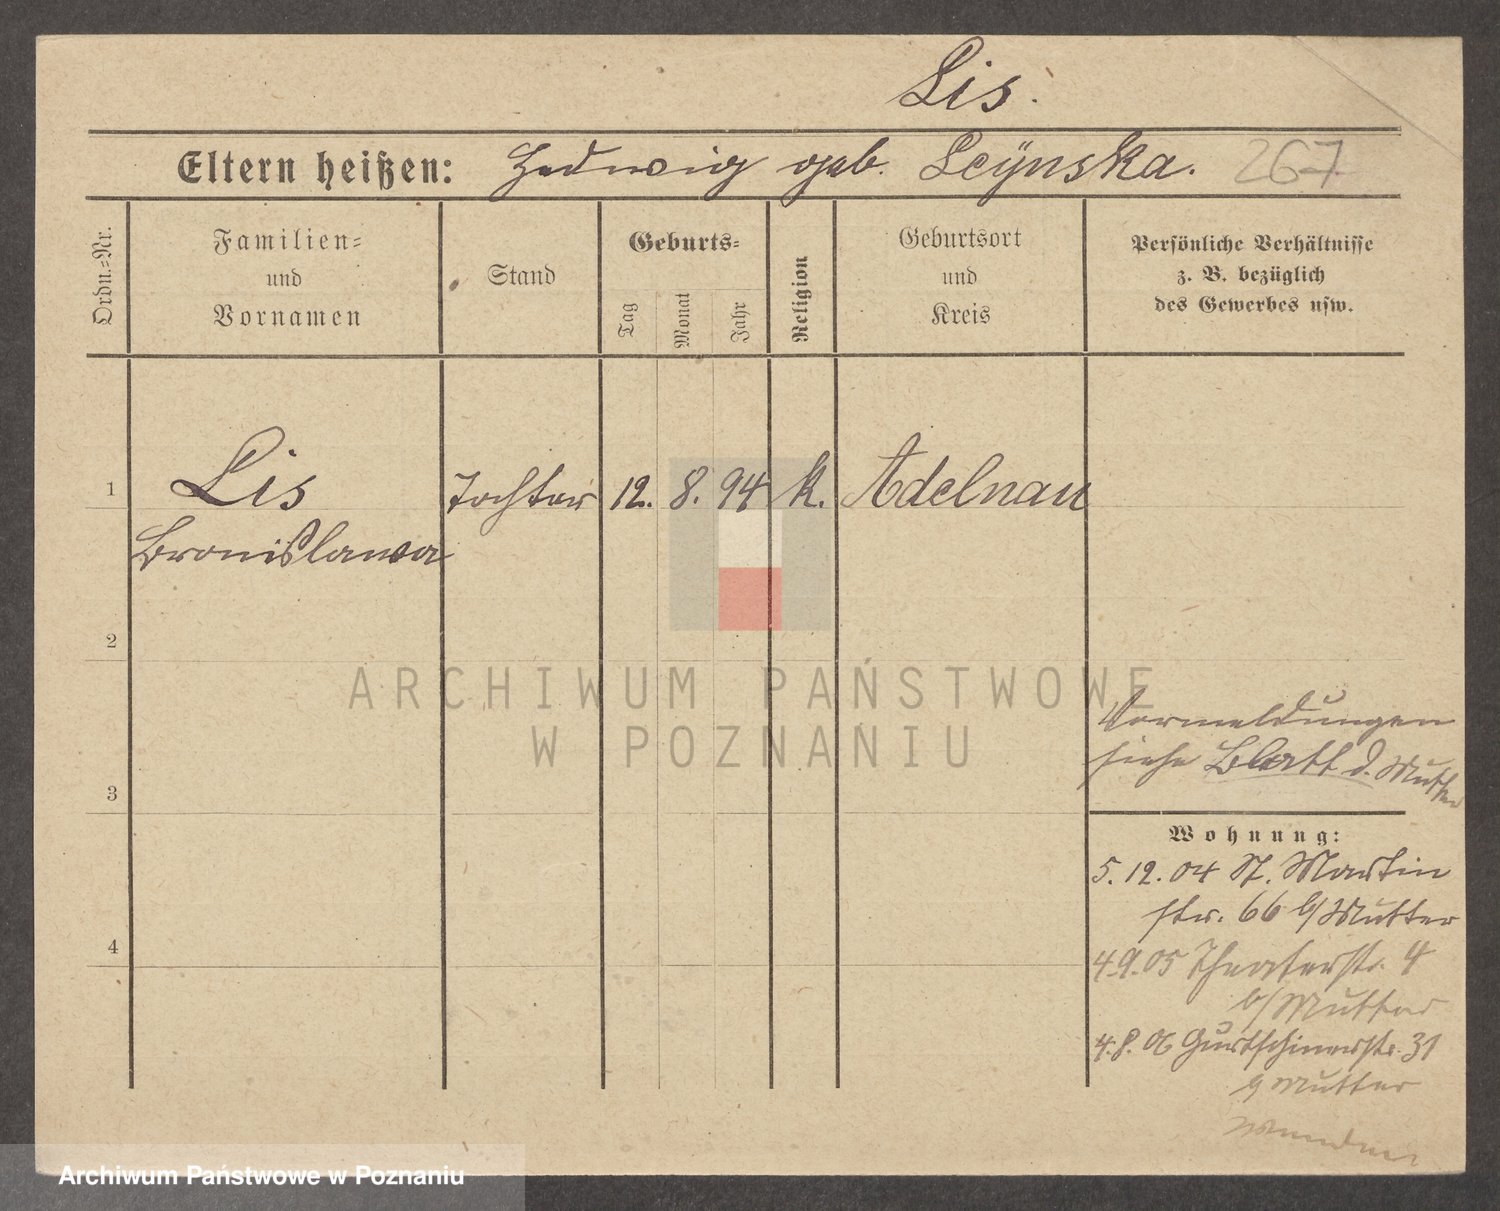 Lis.
Eltern heißen: Hedwig geb. Leÿnska. 267
Ordn.-Nr.
Familien-
und
Vornamen
Stand
Geburts-
Tag
Monat
Jahr
Religion
Geburtsort
und
Kreis
Persönliche Verhältnisse
z. B. bezüglich
des Gewerbes usw.
1 Lis Tochter 12. 8. 94 k. Adelnau
Bronislawa
2
ARCHIWUM PAŃSTWOWE
W POZNANIU
Vormeldungen
siehe Blatt d. Mutter
3
Wohnung:
5. 12. 04 St. Martin
str. 66 b/Mutter
4
4.9.05 Theaterstr. 4
b/Mutter
4.8.06 Gurtschinerstr. 31
b/Mutter
Archiwum Państwowe w Poznaniu